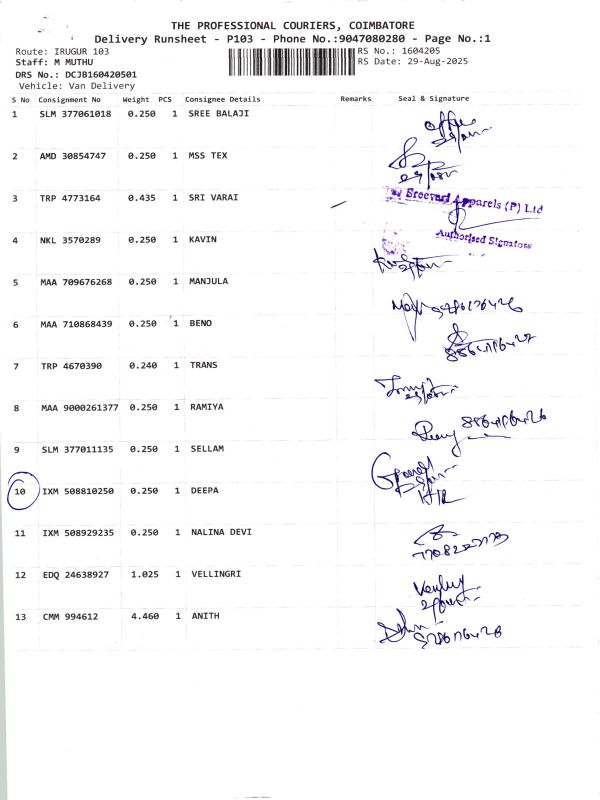 THE PROFESSIONAL COURIERS, COIMBATORE
Delivery Runsheet - P103 - Phone No.:9047080280 - Page No.:1
Route: IRUGUR 103 RS No.: 1604205
Staff: M MUTHU RS Date: 29-Aug-2025
DRS No.: DCJB160420501
Vehicle: Van Delivery
S No Consignment No Weight PCS Consignee Details Remarks Seal & Signature
1 SLM 377061018 0.250 1 SREE BALAJI
2 AMD 30854747 0.250 1 MSS TEX
3 TRP 4773164 0.435 1 SRI VARAI
Sreevari Apparels (P) Ltd
Authorised Signatory
4 NKL 3570289 0.250 1 KAVIN
5 MAA 709676268 0.250 1 MANJULA
6 MAA 710868439 0.250 1 BENO
7 TRP 4670390 0.240 1 TRANS
8 MAA 9000261377 0.250 1 RAMIYA
9 SLM 377011135 0.250 1 SELLAM
10 IXM 508810250 0.250 1 DEEPA
11 IXM 508929235 0.250 1 NALINA DEVI
12 EDQ 24638927 1.025 1 VELLINGRI
13 CMM 994612 4.460 1 ANITH